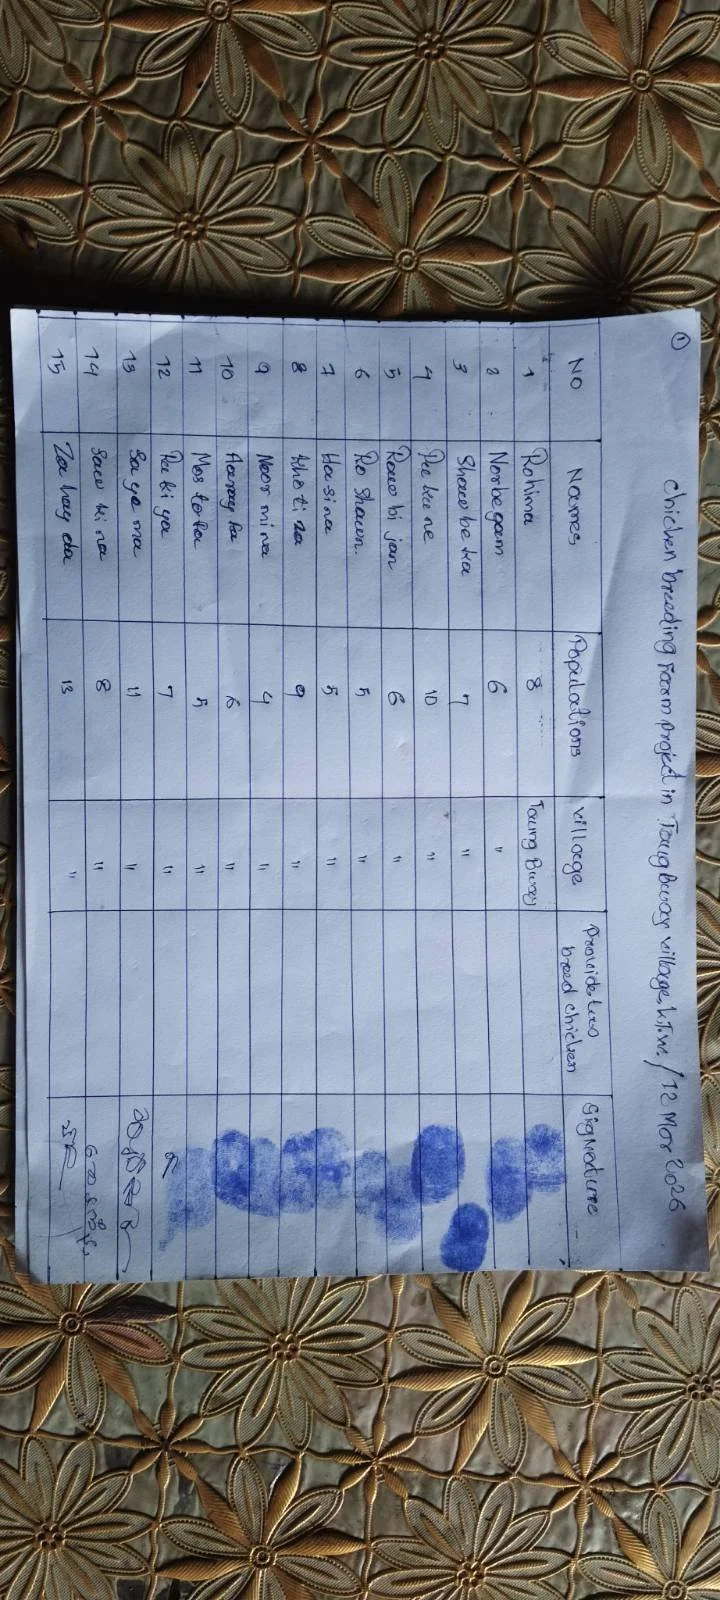 ①
chicken breeding Farm project in Taung Bway village, K.T.W. / 12 Mar 2026
NO Names Populations village Provide two breed chicken Signature
1 Rohima 8 Taung Bway
2 Norbegam 6 "
3 Shawbeka 7 "
4 10 "
5 Rawbi jan 6 "
6 Ro Shawn. 5 "
7 Hasina 5 "
8 Khotiza 9 "
9 Noor mina 4 "
10 6 "
11 5 "
12 7 "
13 Sayema 11 "
14 Saw ki na 8 "
15 13 "